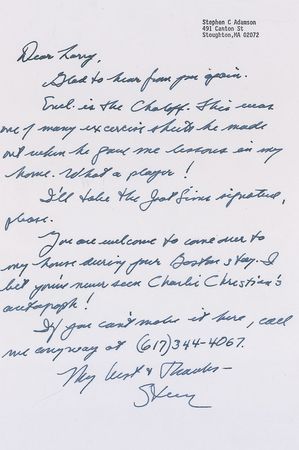 Stephen C Adamson
491 Canton St
Stoughton, MA 02072
Dear Larry,
Glad to hear from you again.
Encl. is the Chaloff. This was
one of many excercise sheets he made
out when he gave me lessons in my
home. What a player!
I'll take the Zoot Sims signature,
please.
You are welcome to come over to
my house during your Boston stay. I
bet you've never seen Charlie Christian's
autograph!
If you can't make it here, call
me anyway at (617) 344-4067.
My best & Thanks-
Steve